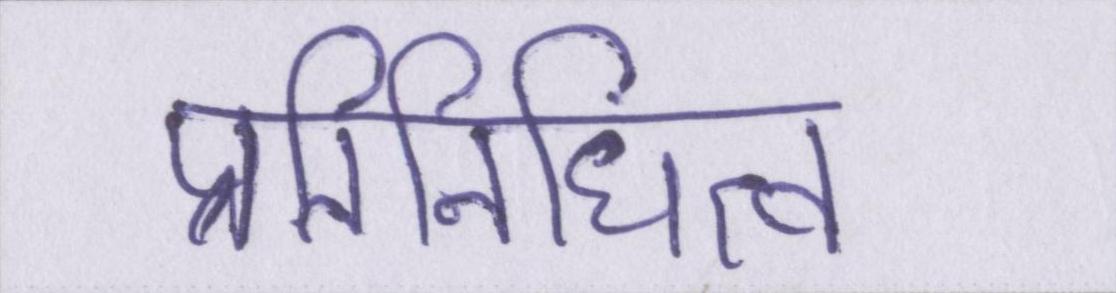 प्रतिनिधिंत्व